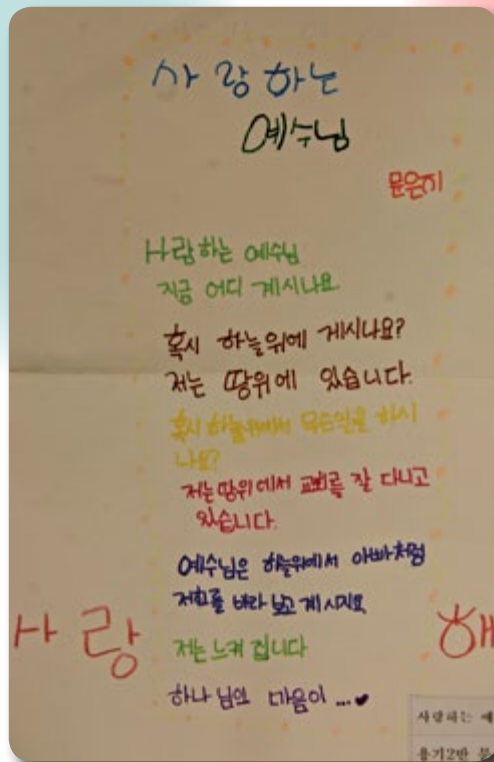 사랑하는
예수님
문은지
사랑하는 예수님
지금 어디 계시나요
혹시 하늘위에 계시나요?
저는 땅위에 있습니다.
혹시 하늘위에서 무슨일을 하시
나요?
저는 땅위에서 교회를 잘 다니고
있습니다.
예수님은 하늘위에서 아빠처럼
저희를 바라 보고 계시지요
저는 느껴 집니다
하나님의 마음이 ...♥
사랑
해
사랑하는 예
용기2반 문